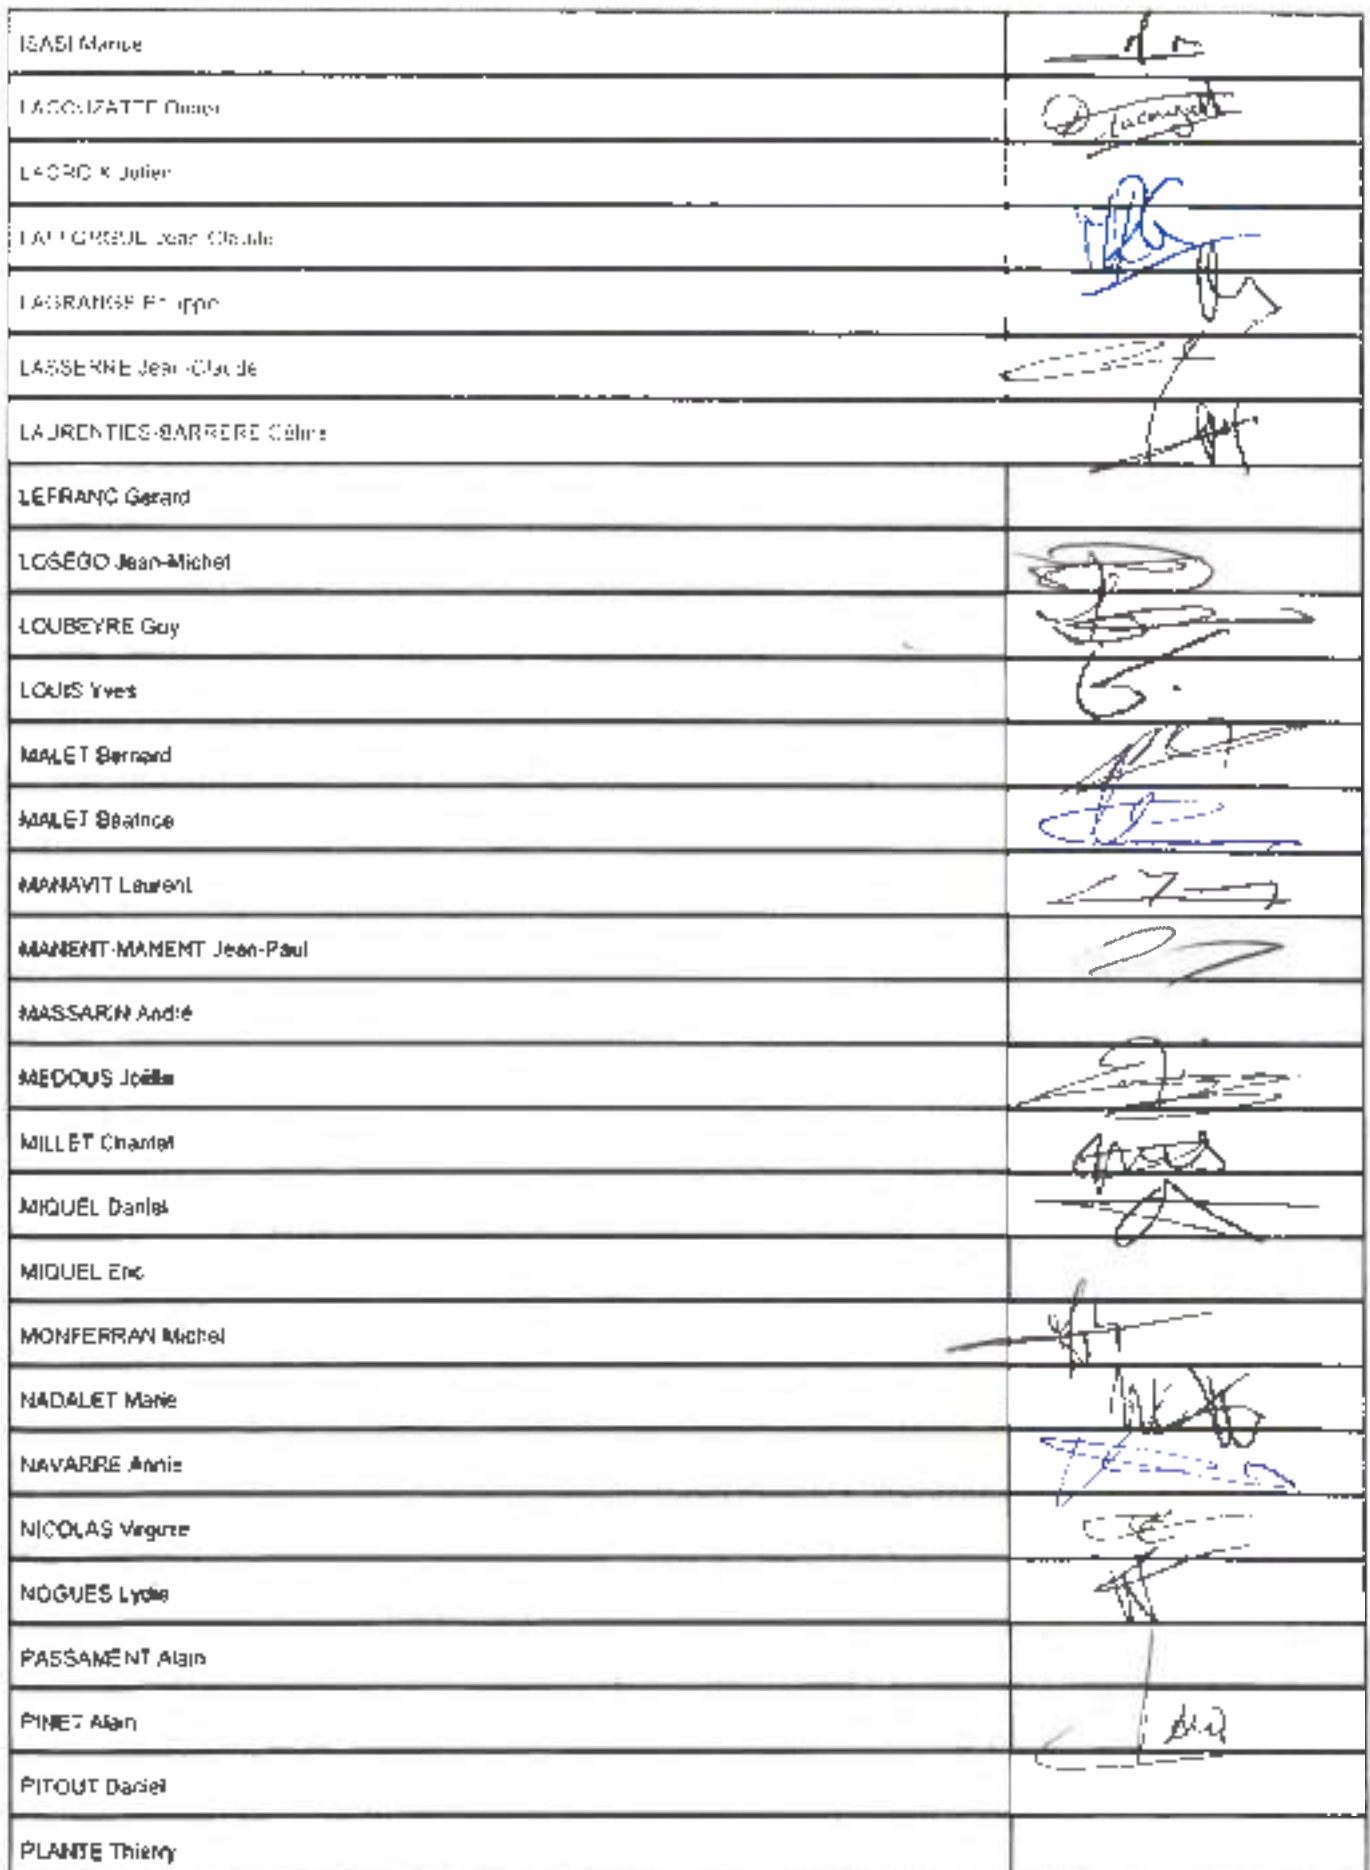 ISASI
LACOUZATTE
LACROIX Julien
LAFFORGUE Jean-Claude
LAGRANGE Philippe
LASSERRE Jean-Claude
LAURENTIES-BARRERE Céline
LEFRANC Gérard
LOSEGO Jean-Michel
LOUBEYRE Guy
LOUIS Yves
MALET Bernard
MALET Béatrice
MANAVIT Laurent
MANENT-MANENT Jean-Paul
MASSARIN André
MEDOUS Joëlle
MILLET Chantal
MIQUEL Daniel
MIQUEL Eric
MONFERRAN Michel
NADALET Marie
NAVARRE Annie
NICOLAS Virginie
NOGUES Lydie
PASSAMENT Alain
PINET Alain
PITOUT Daniel
PLANTE Thierry